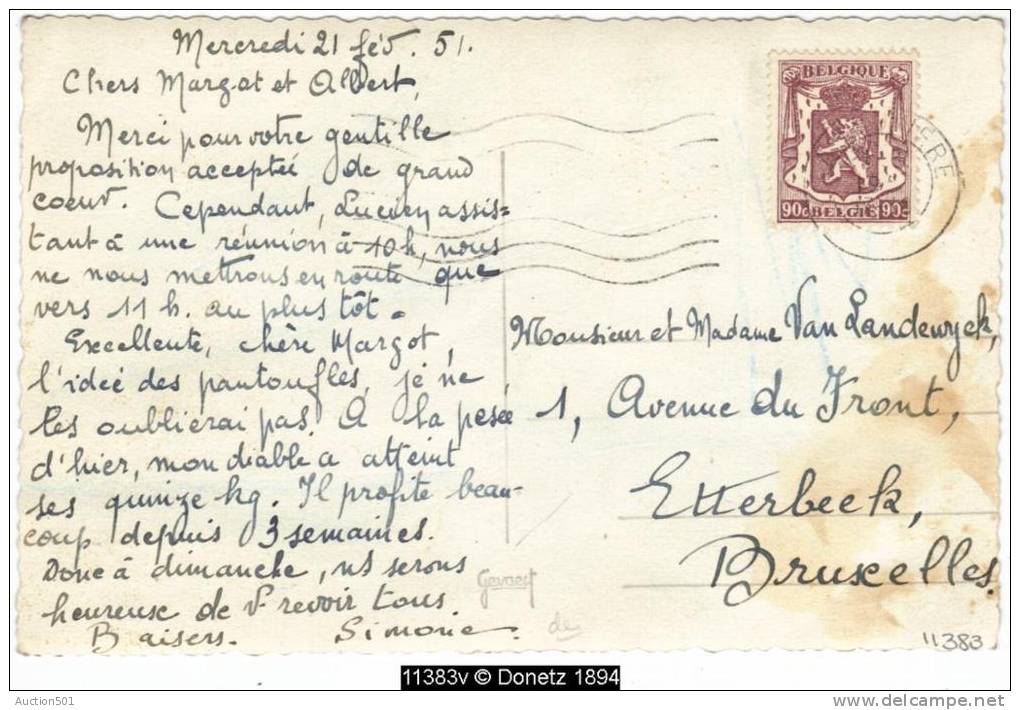 Mercredi 21 fév. 51.
Chers Margot et Albert,
Merci pour votre gentille
proposition acceptée de grand
coeur. Cependant, Lucien assis=
tant à une réunion à 10h, nous
ne nous mettrons en route que
vers 11 h. au plus tôt.
Excellente, chère Margot,
l'idée des pantoufles, je ne
les oublierai pas. A la pesée
d'hier, mon diable a atteint
ses quinze kg. Il profite beau-
coup depuis 3 semaines.
Donc à dimanche, ns serons
heureuse de v revoir tous.
Baisers. Simone.
BELGIQUE
90c BELGIË 90c
Monsieur et Madame Van Landewyck,
1, Avenue du Front,
Etterbeek,
Bruxelles.
Gevaert
de
11383
11383v © Donetz 1894
Auction501
delcampe.net